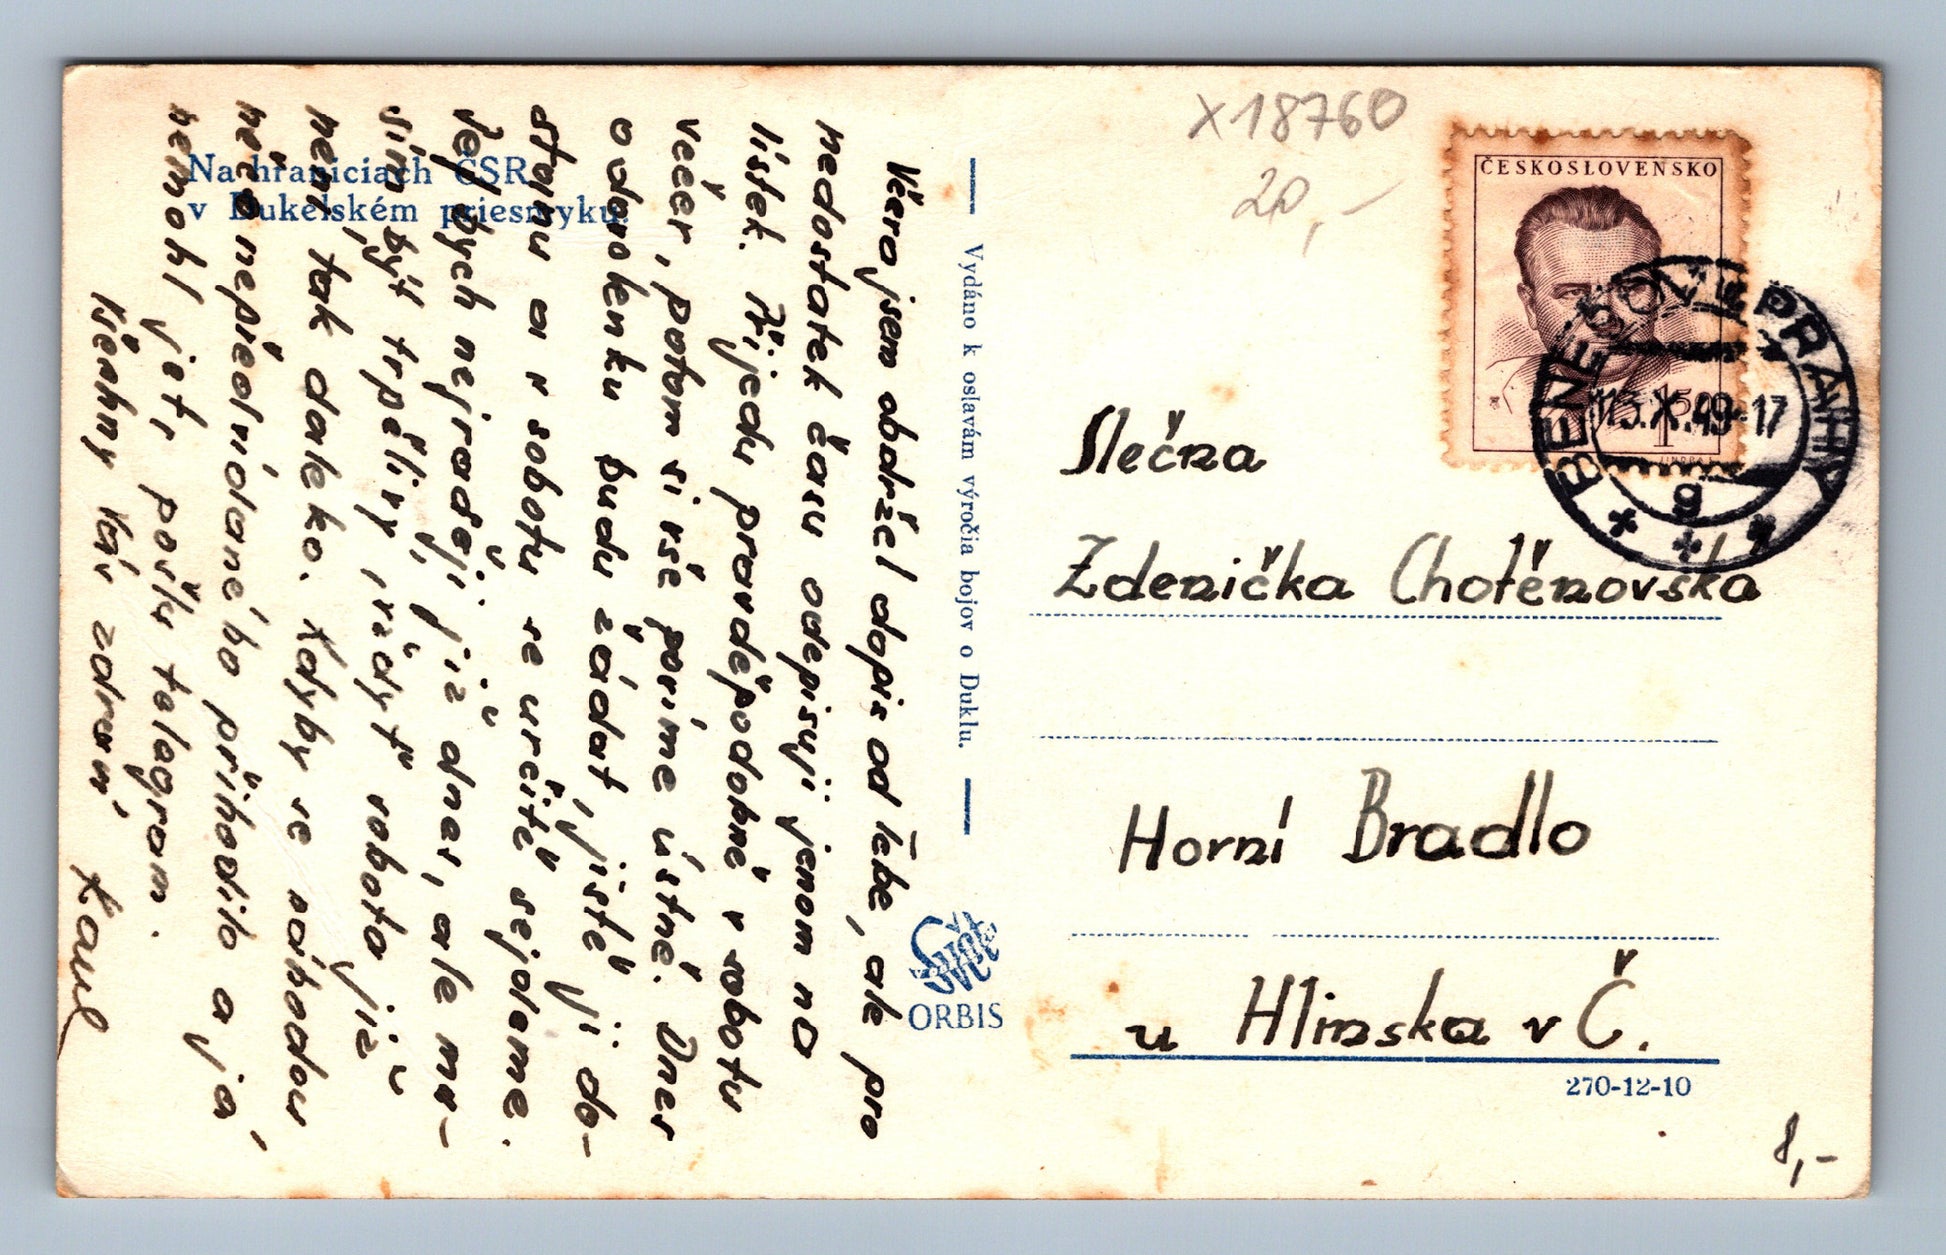 Na hraniciach ČSR
v Dukelském priesmyku.
Včera jsem obdržel dopis od Tebe, ale pro
nedostatek času odepisuji jenom na
lístek. Přijedu pravděpodobně v sobotu
večer, potom si vše povíme ústně. Dnes
o dovolenku budu žádat, jistě ji do-
stanu a v sobotu se určitě sejdeme.
Jel bych nejraději již dnes, ale mu-
sím být trpělivý, vždyť sobota již
není tak daleko. Kdyby se náhodou
něco nepředvídaného přihodilo a já
nemohl jet, pošlu telegram.
Všechny Vás zdraví
Karel
Vydáno k oslavám výročia bojov o Duklu.
ORBIS
X18760
20,-
ČESKOSLOVENSKO
BENEŠOV U PRAHY
13.X.49-17
g
Slečna
Zdenička Chotěnovska
Horní Bradlo
u Hlinska v Č.
270-12-10
8,-